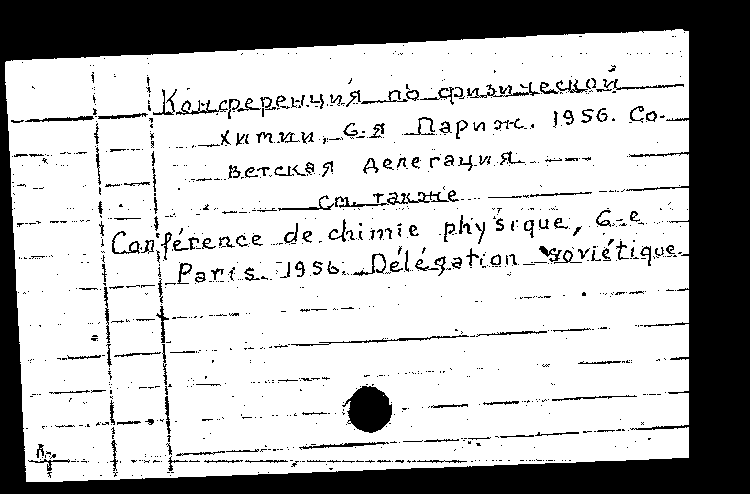 Конференция по физической
химии, 6-я Париж. 1956. Со-
ветская делегация
см. также
Conférence de chimie physique, 6-e
Paris. 1956. Délégation soviétique.